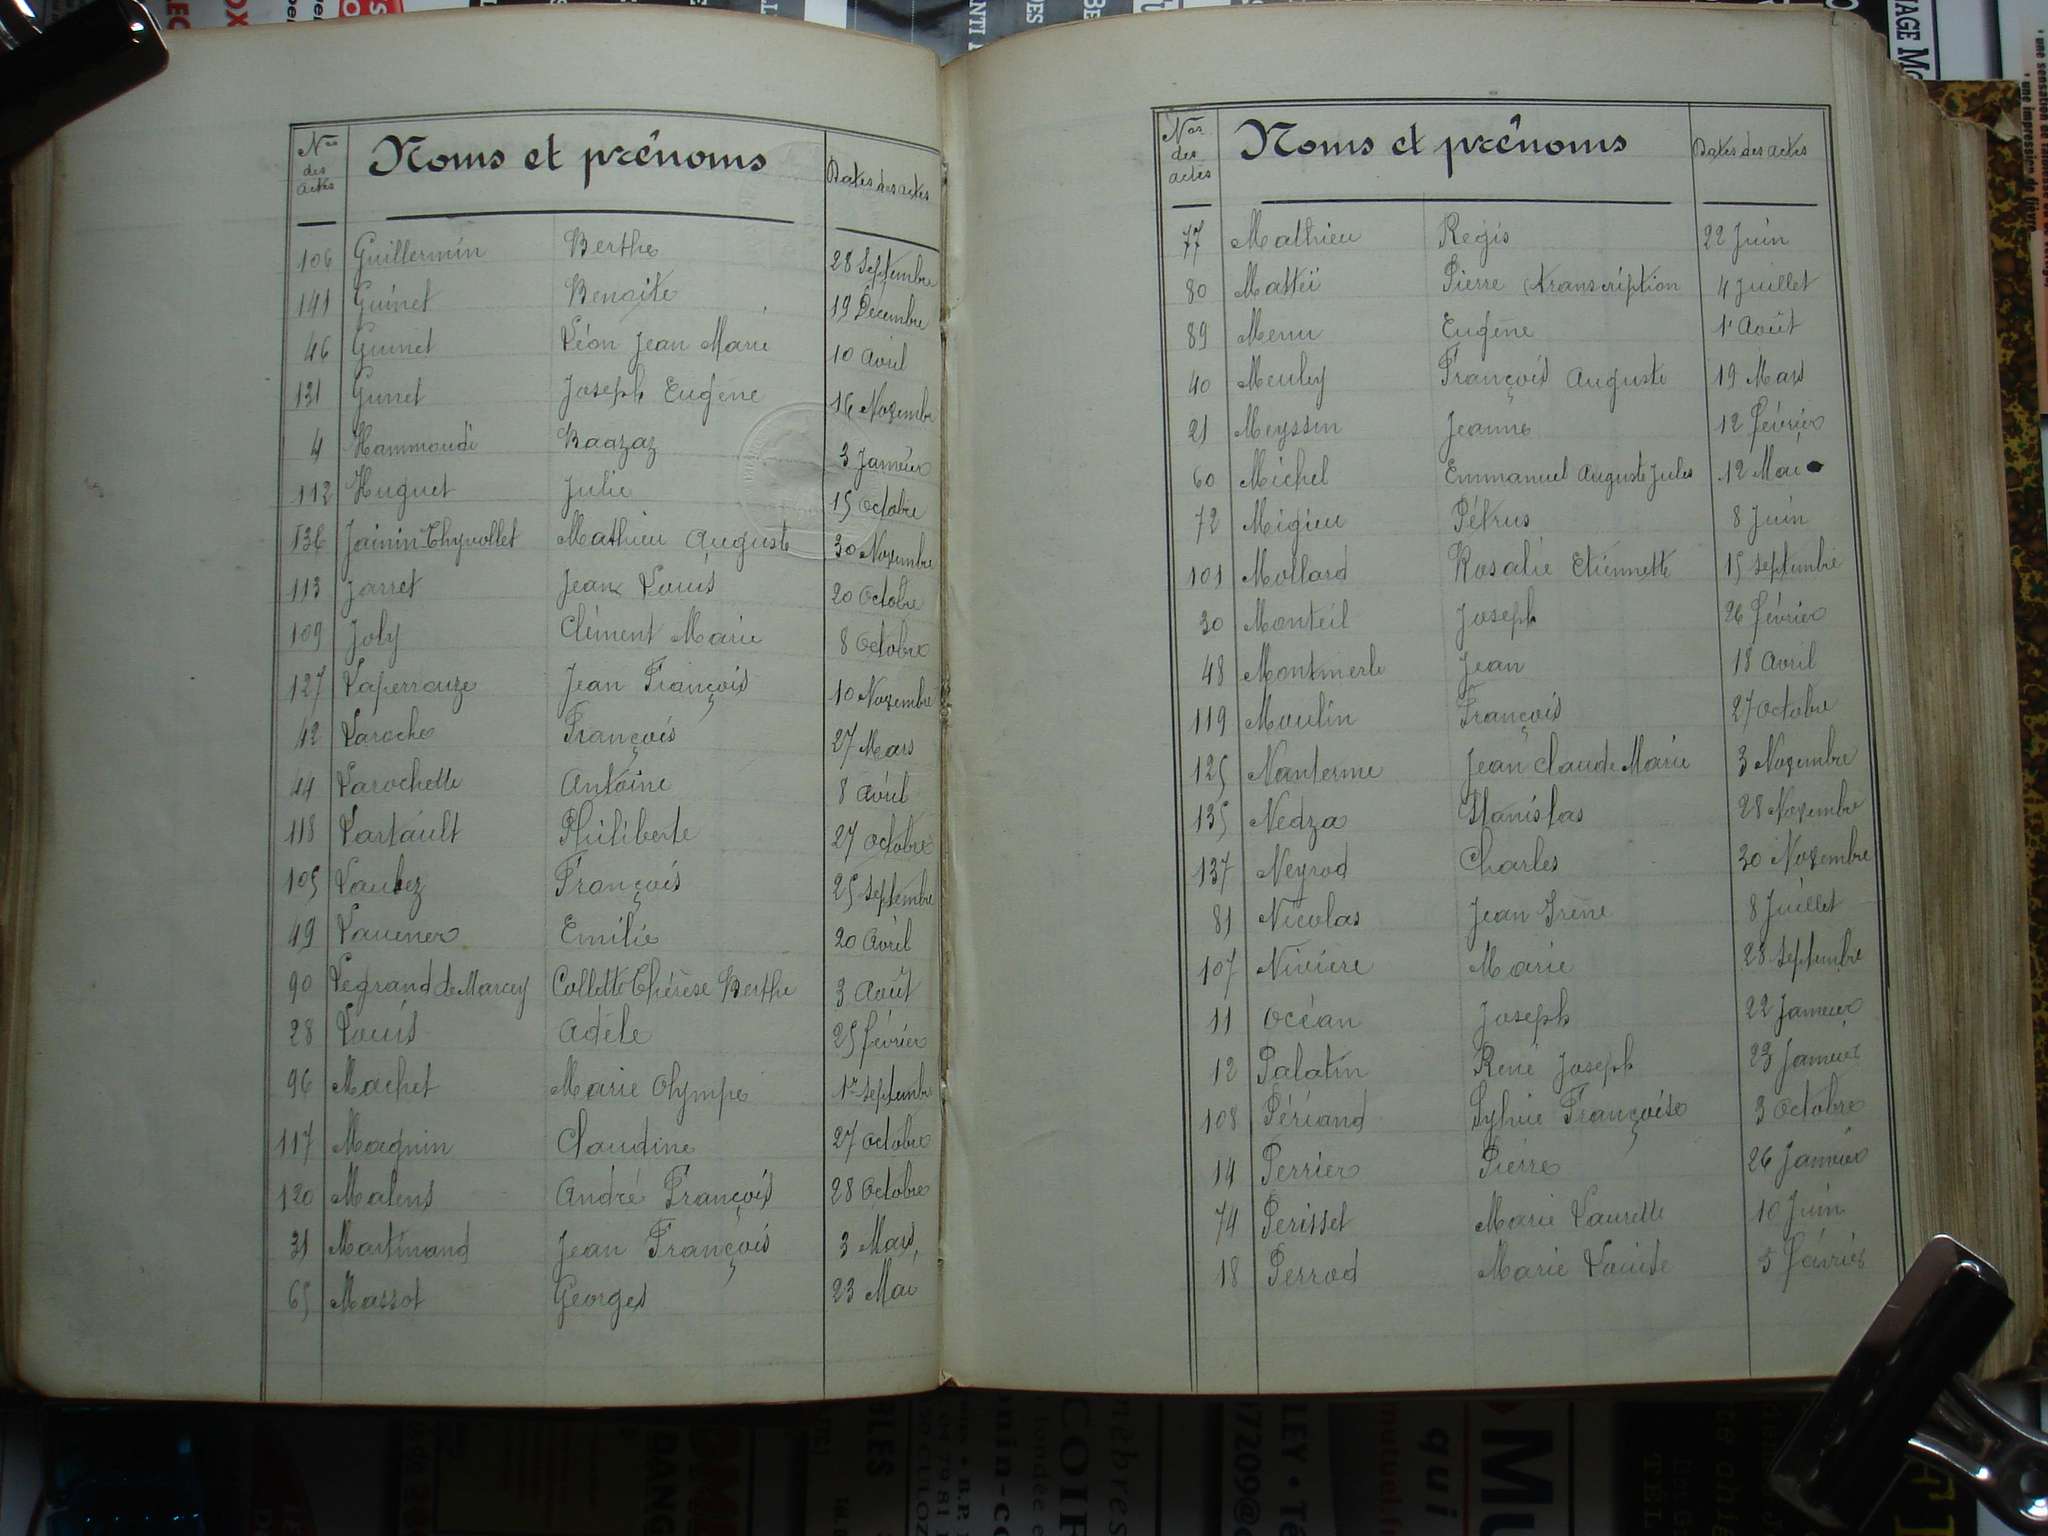 Nos des actes Noms et prénoms Dates des actes
106 Guillermin Berthe 28 Septembre
141 Guinet Benoite 19 Décembre
46 Guinet Léon Jean Marie 10 Avril
131 Gunet Joseph Eugène 16 Novembre
4 Hammoudi Baazaz 3 Janvier
112 Huguet Julie 15 Octobre
136 Jainin-Thyvollet Mathieu Auguste 30 Novembre
113 Jarret Jean Louis 20 Octobre
109 Joly Clément Marie 8 Octobre
127 Laperrouze Jean François 10 Novembre
42 Laroche François 27 Mars
44 Larochette Antoine 8 Avril
118 Lartault Philiberte 27 Octobre
105 François 25 septembre
49 Emilie 20 Avril
90 Legrand de Marcey Collette Thérèse Berthe 3 Août
28 Louis Adèle 25 février
96 Machet Marie Olympe 1er septembre
117 Magnin Claudine 27 Octobre
120 Malens André François 28 Octobre
31 Martinand Jean François 3 Mars
65 Massot Georges 23 Mai
Nos des actes Noms et prénoms Dates des actes
77 Mathieu Regis 22 Juin
80 Matteï Pierre (transcription 4 Juillet
89 Menu Eugène 1r Août
40 Meuley François Auguste 19 Mars
21 Meyssin Jeanne 12 février
60 Michel Emmanuel Auguste Jules 12 Mai
72 Migieu Pétrus 8 Juin
101 Mollard Rosalie Etiennette 15 septembre
30 Monteil Joseph 26 février
48 Montmerle Jean 18 avril
119 Moulin François 27 octobre
125 Nanterme Jean Claude Marie 3 Novembre
135 Nedza Stanislas 28 Novembre
137 Neyrod Charles 30 Novembre
81 Nicolas Jean Irène 8 Juillet
107 Nivière Marie 28 septembre
11 Océan Joseph 22 Janvier
12 Palatin René Joseph 23 Janvier
108 Périand Sylvie Françoise 3 Octobre
14 Perrier Pierre 26 Janvier
74 Perisset Marie Laurette 10 Juin
18 Perrod Marie Louise 5 février